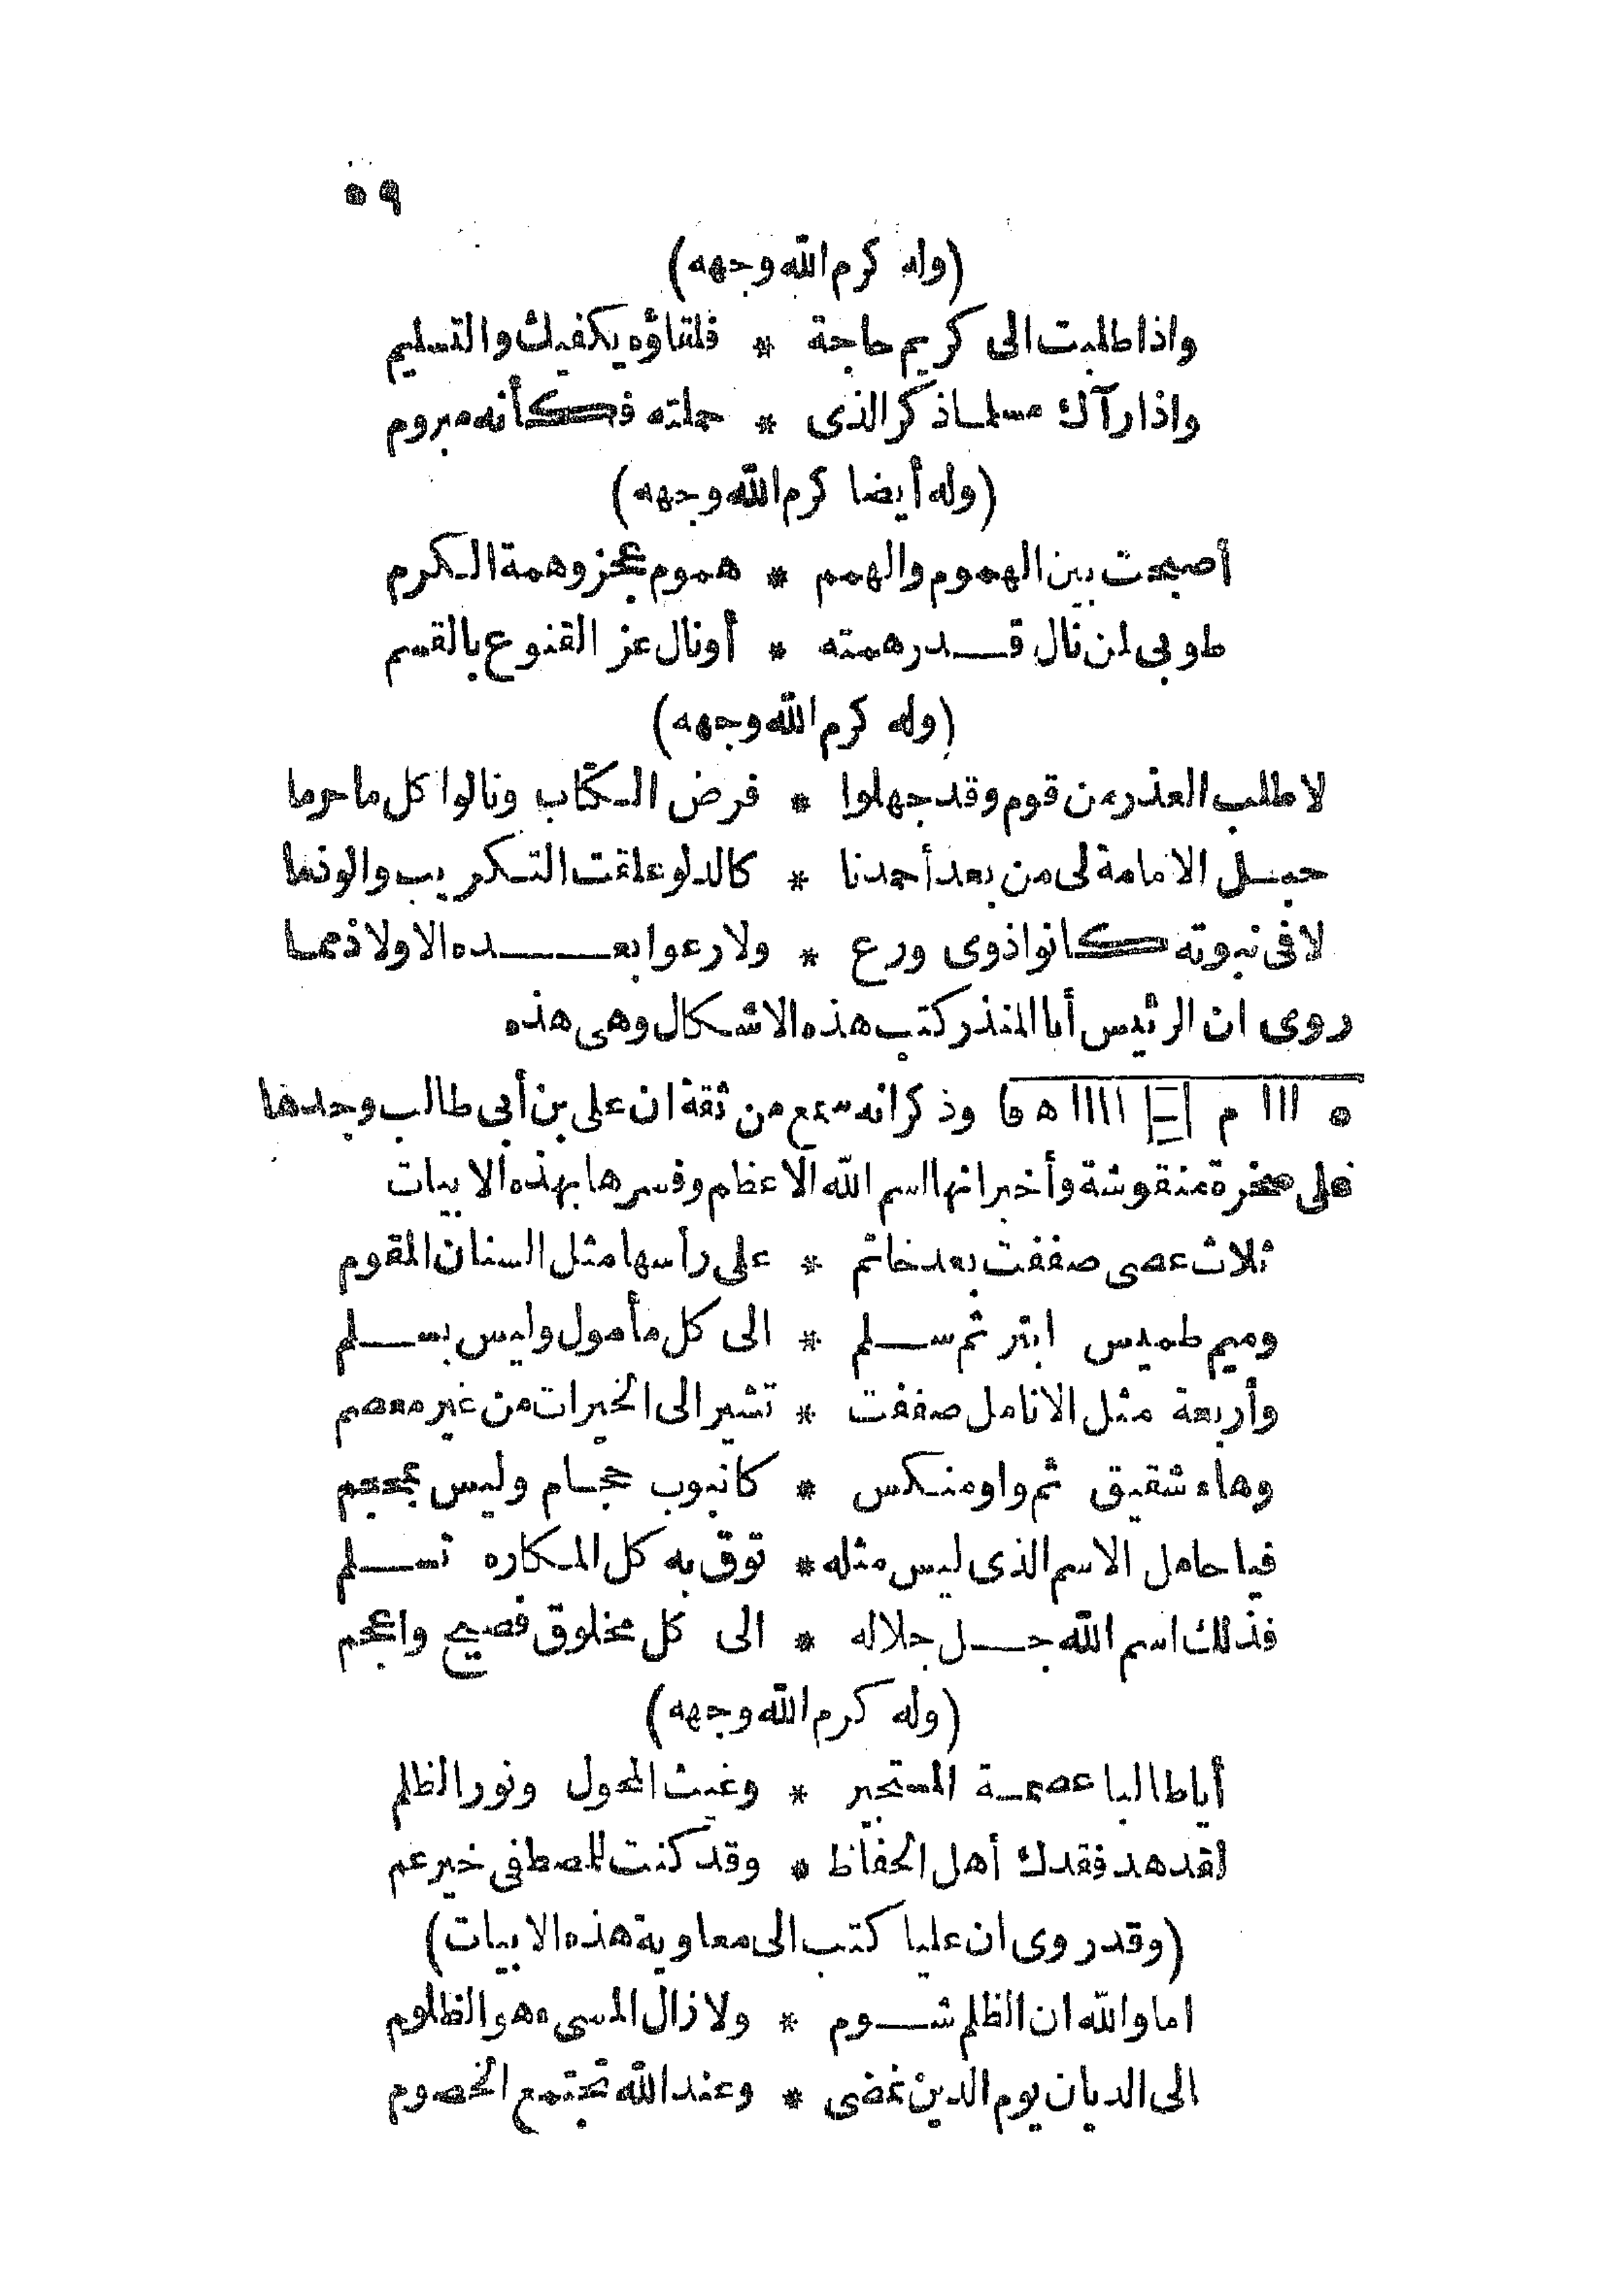 ٥٩
(وله كرم الله وجهه)
واذا طلبت الى كريم حاجة * فلقاؤه يكفيك والتسليم
واذا رآك مسلما ذكر الذى * حملته فكأنه مبروم
(وله أيضا كرم الله وجهه)
أصبحت بين الهموم والهمم * هموم عجز وهمة الكرم
طوبى لمن نال قدر همته * أو نال عز القنوع بالقسم
(وله كرم الله وجهه)
لاطلب العذر من قوم وقد جهلوا * فرض الكتاب ونالوا كل ما حرما
حبل الامامة لى من بعد أحمدنا * كالدلو علقت التكريب والوذما
لا فى نبوته كانوا ذوى ورع * ولا رعوا بعده الا ولا ذمما
روى ان الرئيس أبا المنذر كتب هذه الاشكال وهى هذه
ه ااا م اااا ه و وذكر انه سمع من ثقة ان على بن أبى طالب وجدها
على صخرة منقوشة وأخبر انها اسم الله الاعظم وفسرها بهذه الابيات
ثلاث عصى صففت بعد خاتم * على رأسها مثل السنان المقوم
وميم طميس ابتر ثم سلم * الى كل مأمول وليس بسلم
وأربعة مثل الانامل صففت * تشير الى الخيرات من غير معصم
وهاء شقيق ثم واو منكس * كانبوب حجام وليس بمحجم
فيا حامل الاسم الذى ليس مثله * توق به كل المكاره تسلم
فذلك اسم الله جل جلاله * الى كل مخلوق فصيح واعجم
(وله كرم الله وجهه)
أباطالبا عصمة المستجير * وغيث المحول ونور الظلم
لقد هد فقدك أهل الحفاظ * وقد كنت للمصطفى خير عم
(وقد روى ان عليا كتب الى معاوية هذه الابيات)
اما والله ان الظلم شوم * ولا زال المسىء هو الظلوم
الى الديان يوم الدين نمضى * وعند الله تجتمع الخصوم